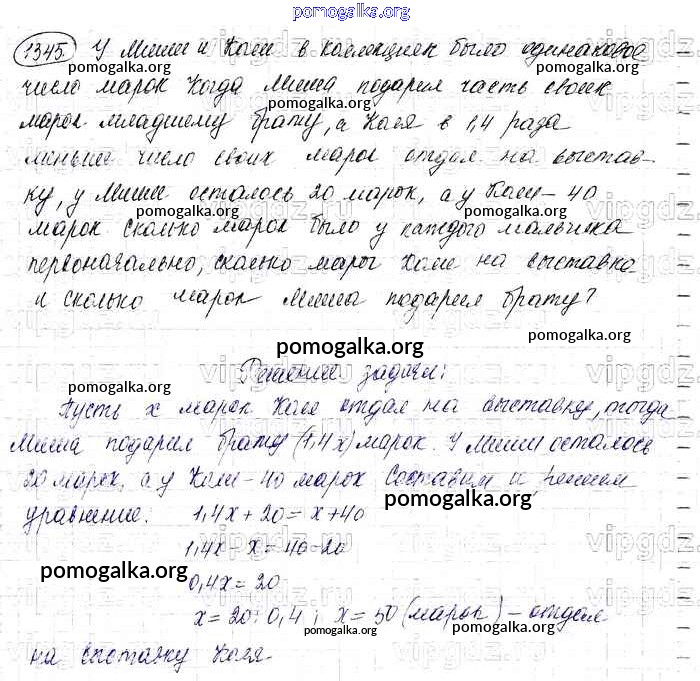 pomogalka.org
1345. У Миши и Коли в коллекциях было одинаковое
число марок Когда Миша подарил часть своих
марок младшему брату, а Коля в 1,4 раза
меньше число своих марок отдал на выстав-
ку, у Миши осталось 20 марок, а у Коли - 40
марок сколько марок было у каждого мальчика
первоначально, сколько марок Коля на выставке
и сколько марок Миша подарил брату?
pomogalka.org
Решение задачи:
Пусть x марок Коля отдал на выставку, тогда
Миша подарил брату (1,4x) марок. У Миши осталось
20 марок, а у Коли - 40 марок Составим и решим
уравнение. 1,4x + 20 = x + 40
1,4x - x = 40 - 20
pomogalka.org
0,4x = 20
x = 20 : 0,4 ; x = 50 (марок) - отдал
на выставку Коля